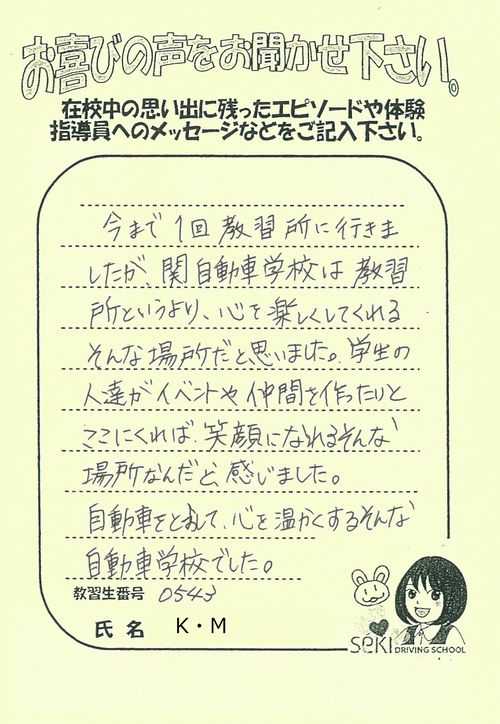 お喜びの声をお聞かせ下さい。
在校中の思い出に残ったエピソードや体験
指導員へのメッセージなどをご記入下さい。
今まで1回教習所に行きま
したが、関自動車学校は教習
所というより、心を楽しくしてくれる
そんな場所だと思いました。学生の
人達がイベントや仲間を作ったりと
ここにくれば、笑顔になれるそんな
場所なんだと、感じました。
自動車をとおして、心を温かくするそんな
自動車学校でした。
教習生番号 0543
氏名 K・M
SEKI DRIVING SCHOOL